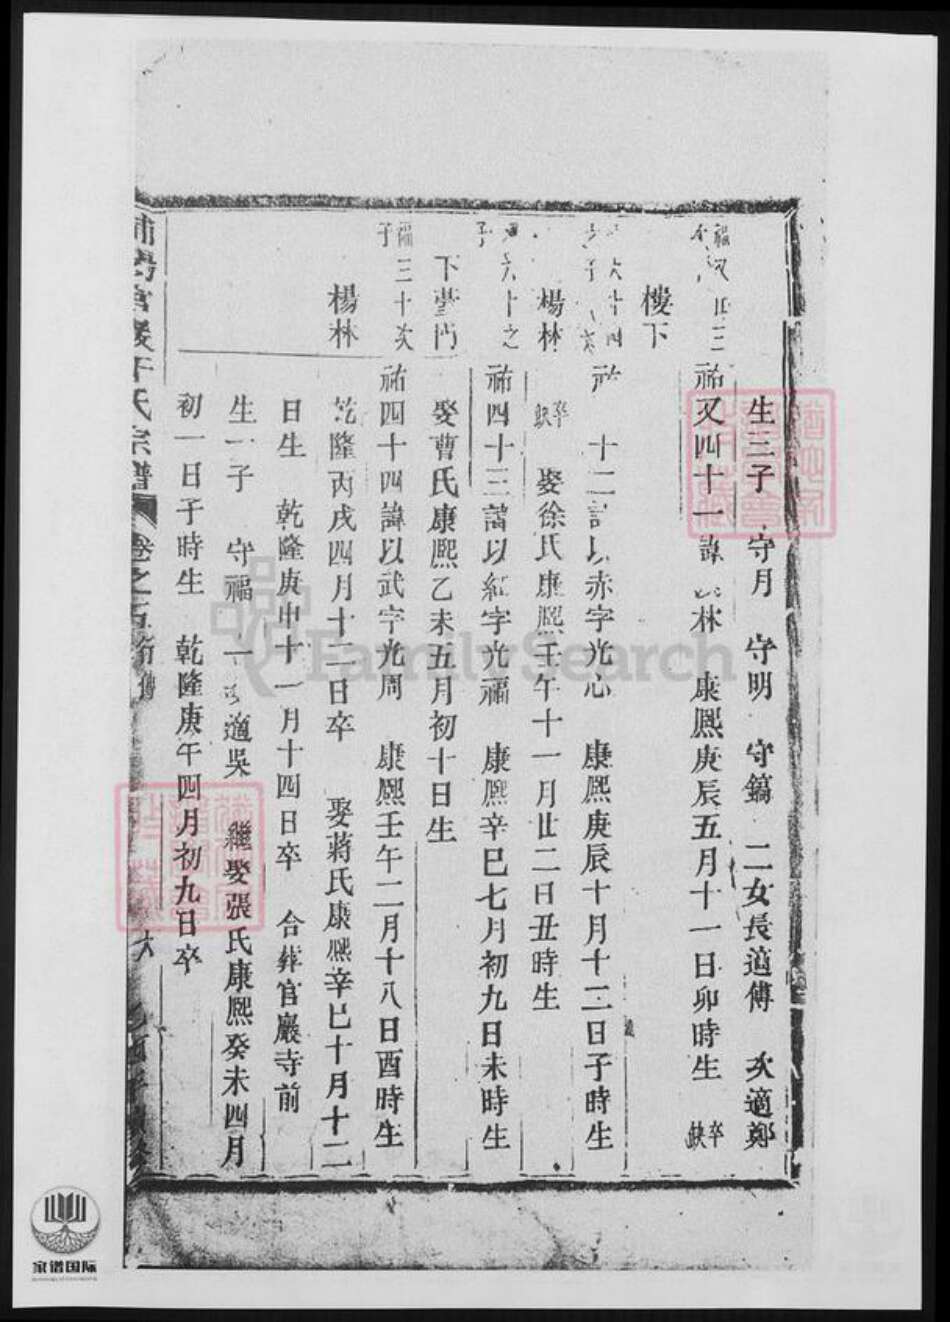 生三子 守月 守明 守鎬 二女長適傅 次適鄭
福又廿三
祐又四十一諱 林 康熙庚辰五月十一日卯時生 卒缺
樓下
十二諱以赤字光心 康熙庚辰十月十二日子時生
楊林
卒缺 娶徐氏康熙壬午十一月廿二日丑時生
六十之
子
祐四十三諱以紅字光福 康熙辛巳七月初九日未時生
下臺門
娶曹氏康熙乙未五月初十日生
福三十次
子
祐四十四諱以武字光周 康熙壬午二月十八日酉時生
楊林
乾隆丙戌四月十二日卒 娶蔣氏康熙辛巳十月十二
日生 乾隆庚申十一月十四日卒 合葬官巖寺前
生一子 守福 一 適吳 繼娶張氏康熙癸未四月
初一日子時生 乾隆庚午四月初九日卒
氏宗譜 卷之 行傳
FamilySearch
家谱国际